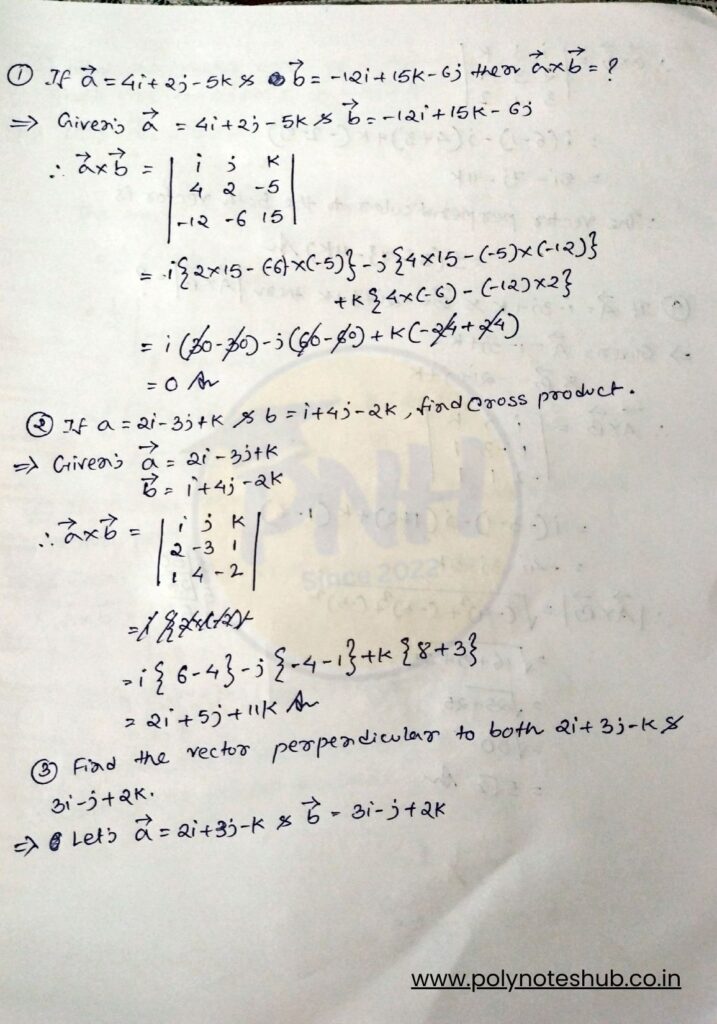 ① If a⃗ = 4i+2j-5k & b⃗ = -12i+15k-6j then a⃗×b⃗ = ?
⇒ Given; a⃗ = 4i+2j-5k & b⃗ = -12i+15k-6j
∴ a⃗×b⃗ = | i j k |
| 4 2 -5 |
| -12 -6 15 |
= i{2×15 - (-6)×(-5)} - j{4×15 - (-5)×(-12)}
+k{4×(-6) - (-12)×2}
= i(30-30)-j(60-60)+k(-24+24)
= 0 Ans
② If a = 2i-3j+k & b = i+4j-2k, find cross product.
⇒ Given; a⃗ = 2i-3j+k
b⃗ = i+4j-2k
∴ a⃗×b⃗ = | i j k |
| 2 -3 1 |
| 1 4 -2 |
= i{6-4}-j{-4-1}+k{8+3}
= 2i+5j+11k Ans
③ Find the vector perpendicular to both 2i+3j-k &
3i-j+2k.
⇒ Let; a⃗ = 2i+3j-k & b⃗ = 3i-j+2k
PNH
Since 2022
www.polynoteshub.co.in